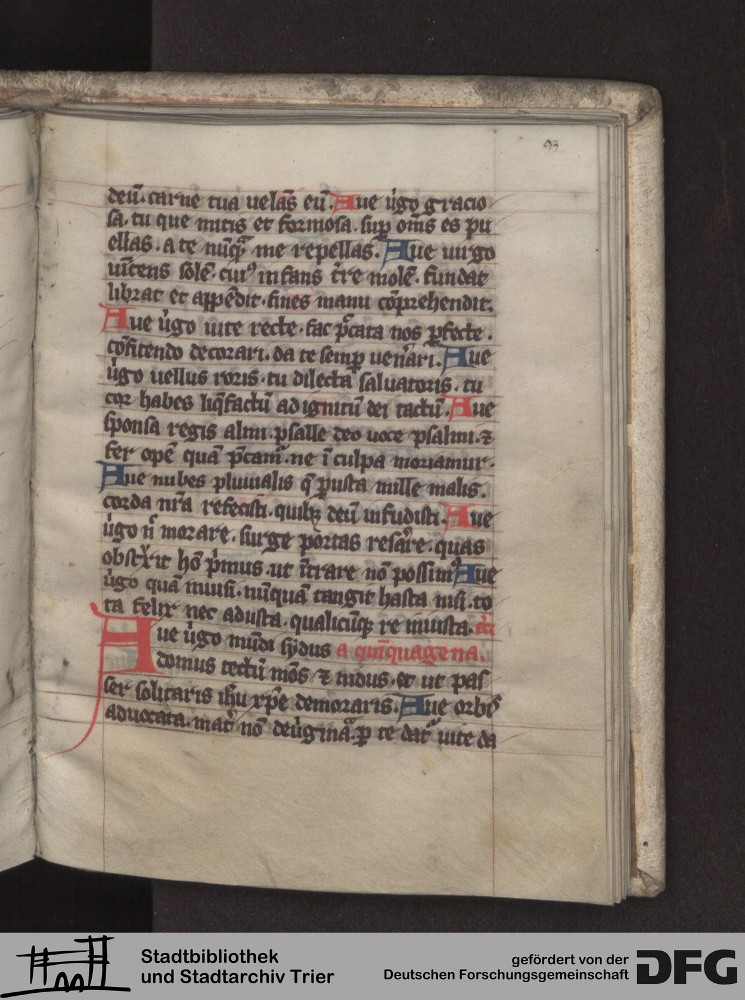 93.
deū. carne tua uelās eū. Aue ůgo gracio
sa. tu que mitis et formosa. sup om̄s es pu
ellas. a te nūq̄ me repellas. Aue uirgo
uīcens solē. cuiꝰ infans t̄re molē. fundat
librat et appēdit. fines manu cōprehendit.
Aue ůgo uite recte. fac p̄cata nos ꝑfecte.
cōfitendo decorari. da te semꝑ uen̄ari. Aue
ůgo uellus roris. tu dilecta saluatoris. tu
cor habes liq̄factū ad ignitū dei tactū. Aue
sponsa regis almi. psalle deo uoce psalmi. ⁊
fer opē quā p̄cam̄. ne ī culpa moriamur.
Aue nubes pluuialis q̄ ꝑusta mille malis.
corda nr̄a refecisti. quibꝫ deū infudisti. Aue
ůgo n̄ morare. surge portas resar̄e. quas
obstr̄xit hō p̄mus. ut īt̄rare nō possimꝰ Aue
ůgo quā inuisi. nūquā tangit hasta nisi. to
ta felix nec adusta. qualicūqꝫ re inuista.
Aue ůgo mūdi sydus a quīquagena.
domus tectū mōs ⁊ nidus. et ut pas
ser solitaris ihū xp̄e demoraris. Aue orbis
aduocata. mat̄ nō de ůgīnata. ꝑ te dat̄ uite da
Stadtbibliothek
und Stadtarchiv Trier
gefördert von der
Deutschen Forschungsgemeinschaft
DFG